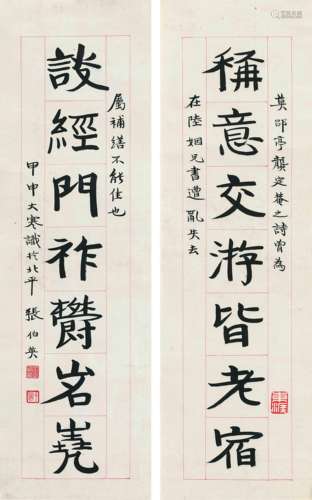 莫郘亭龔定菴之詩曾為
稱意交游皆老宿
在陸姻兄書遭亂失去
屬補繕不能佳也
談經門祚鬱岧嶤
甲申大寒識於北平 張伯英